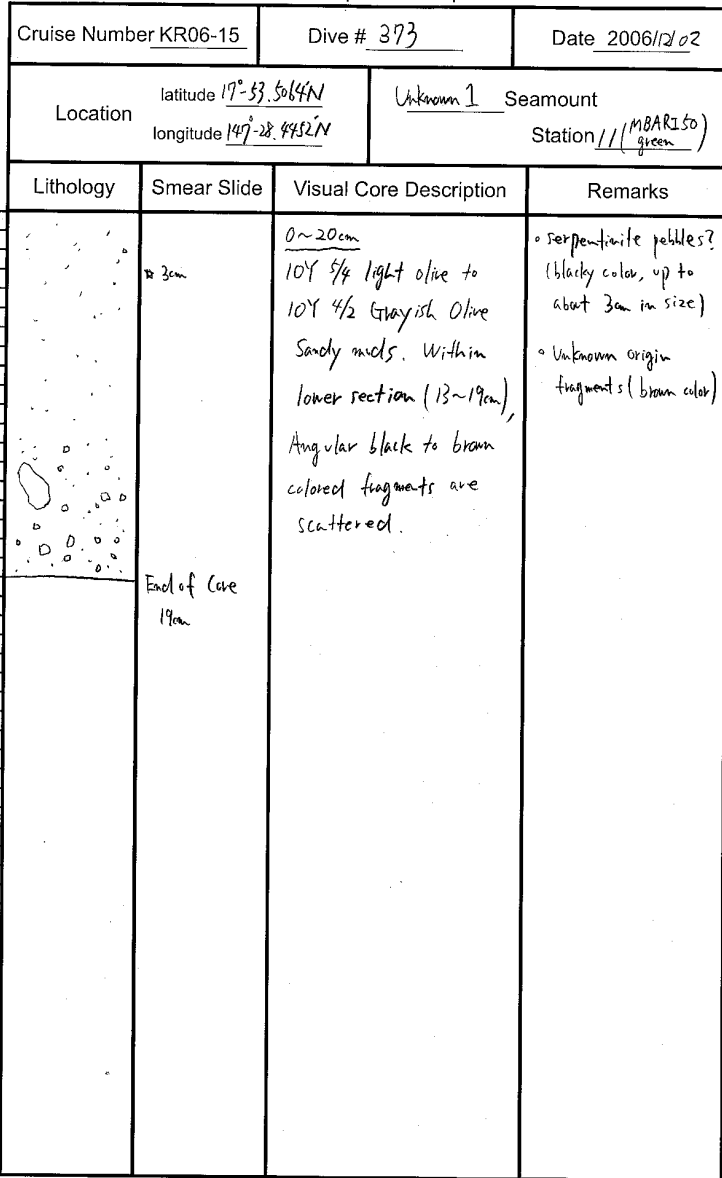 Cruise Number KR06-15
Dive # 373
Date 2006/12/02
Location
latitude 17°-53.5064'N
longitude 147°-28.4452'N
Unknown 1 Seamount
Station 11 (MBARI50
green)
Lithology
Smear Slide
Visual Core Description
Remarks
3cm
End of Core
19cm
0~20cm
10Y 5/4 light olive to
10Y 4/2 Grayish Olive
Sandy muds. Within
lower section (13~19cm),
Angular black to brown
colored fragments are
scattered.
• serpentinite pebbles?
(blacky color, up to
about 3cm in size)
• Unknown origin
fragments (brown color)